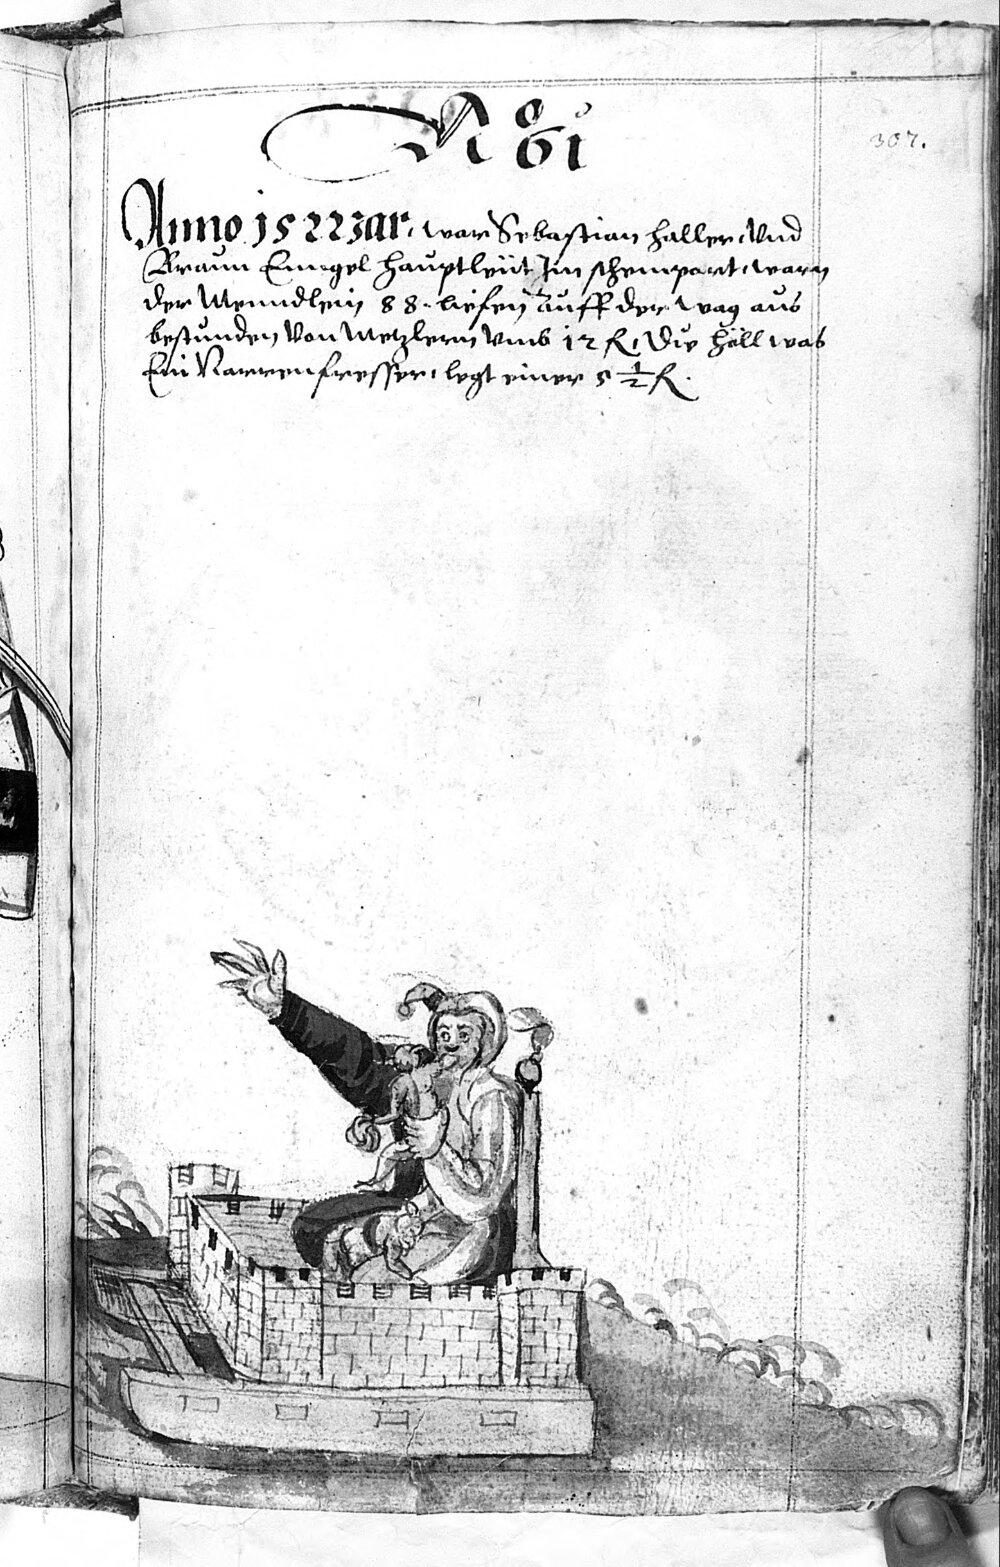 No 61
307.
Anno 1522 Jar, war Sebastian Haller, Vnd
Braun Enngel haupttleüt Im schempart, warn
der Menndlein 88. liefen auff der wag aus
bestunden Von Metzlern Vmb 12 fl, Die Häll was
Ein Narrenfresser, legt einer 5 1/2 fl.